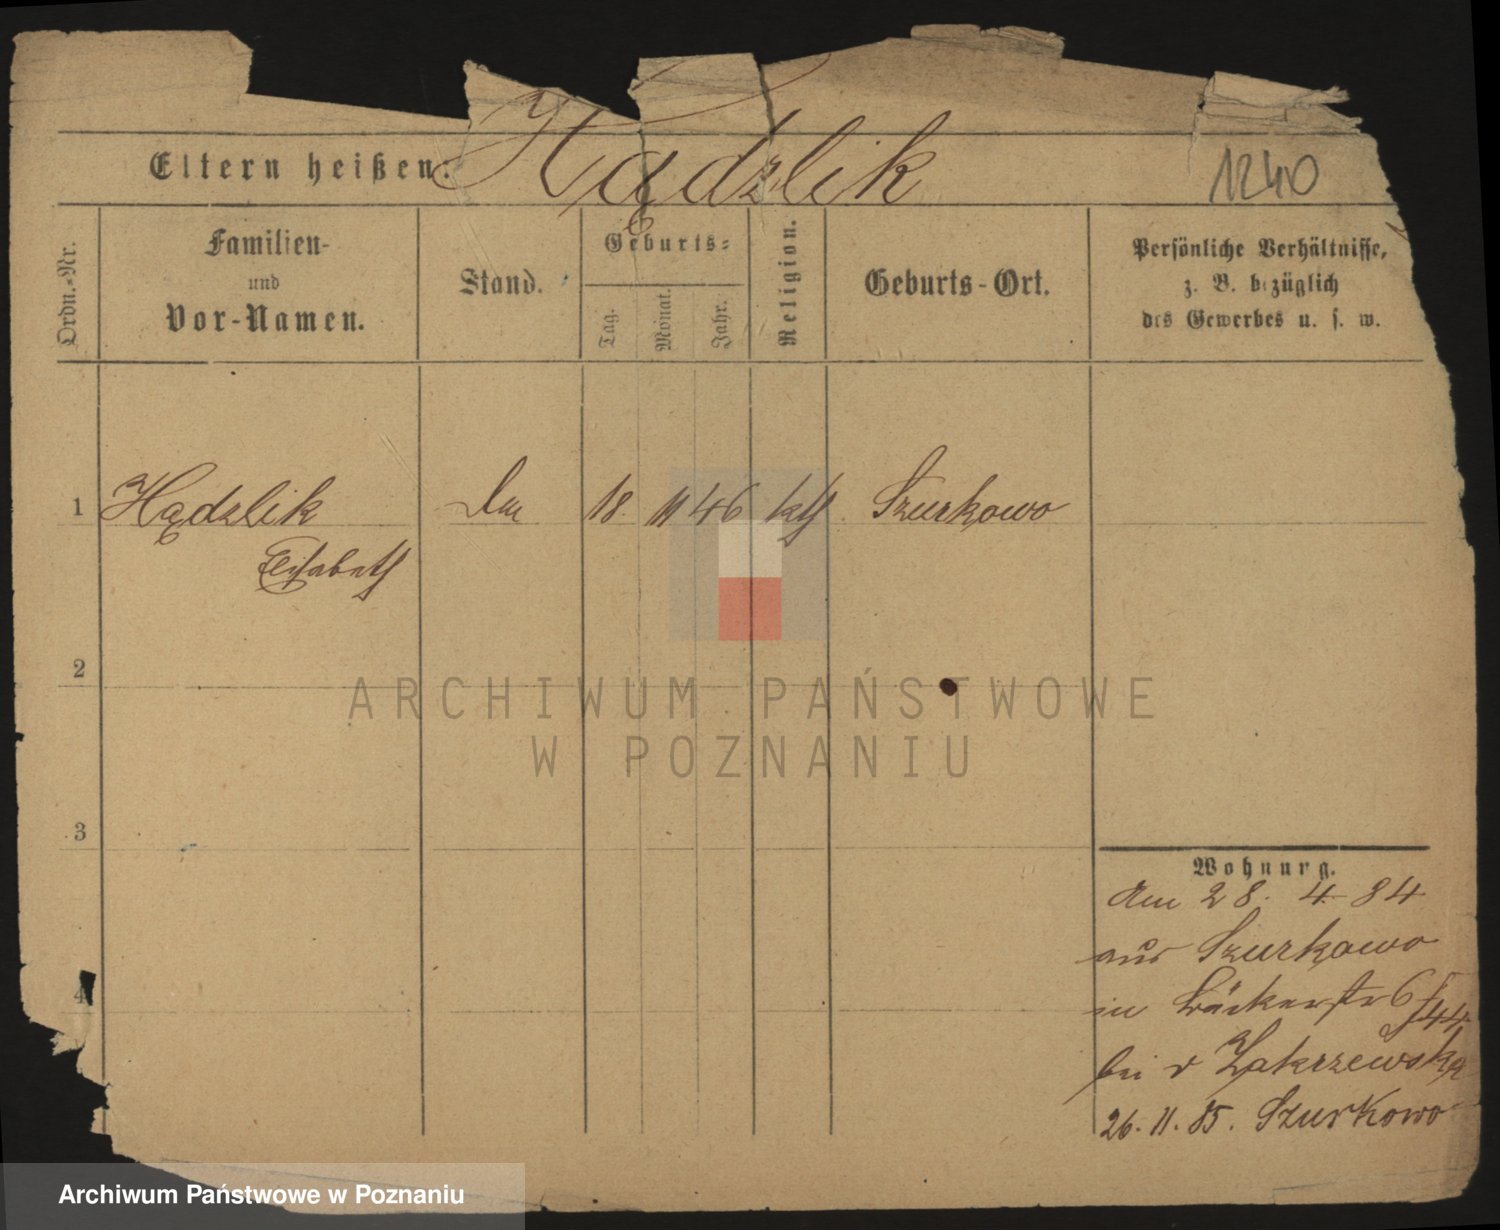 Eltern heißen: Hądzlik 1240
Ordn.-Nr.
Familien-
und
Vor-Namen.
Stand.
Geburts-
Tag.
Monat.
Jahr.
Religion.
Geburts-Ort.
Persönliche Verhältnisse,
z. B. bezüglich
des Gewerbes u. s. w.
1 Hądzlik 18. 11 46 kth. Szurkowo
Elisabeth
2
ARCHIWUM PAŃSTWOWE
W POZNANIU
3
Wohnung.
Am 28. 4. 84
aus Szurkowo
4
in Bäckerstr 6
bei v Zakrzewska
26. 11. 85. Szurkowo
Archiwum Państwowe w Poznaniu